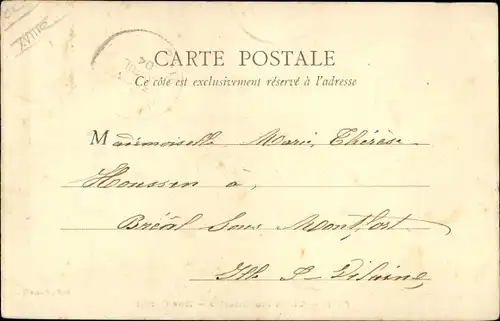 CARTE POSTALE
Ce côté est exclusivement réservé à l'adresse
Mademoiselle Marie Thérèse
Houssen à,
Bréal Sous Montfort
Ille & Vilaine,